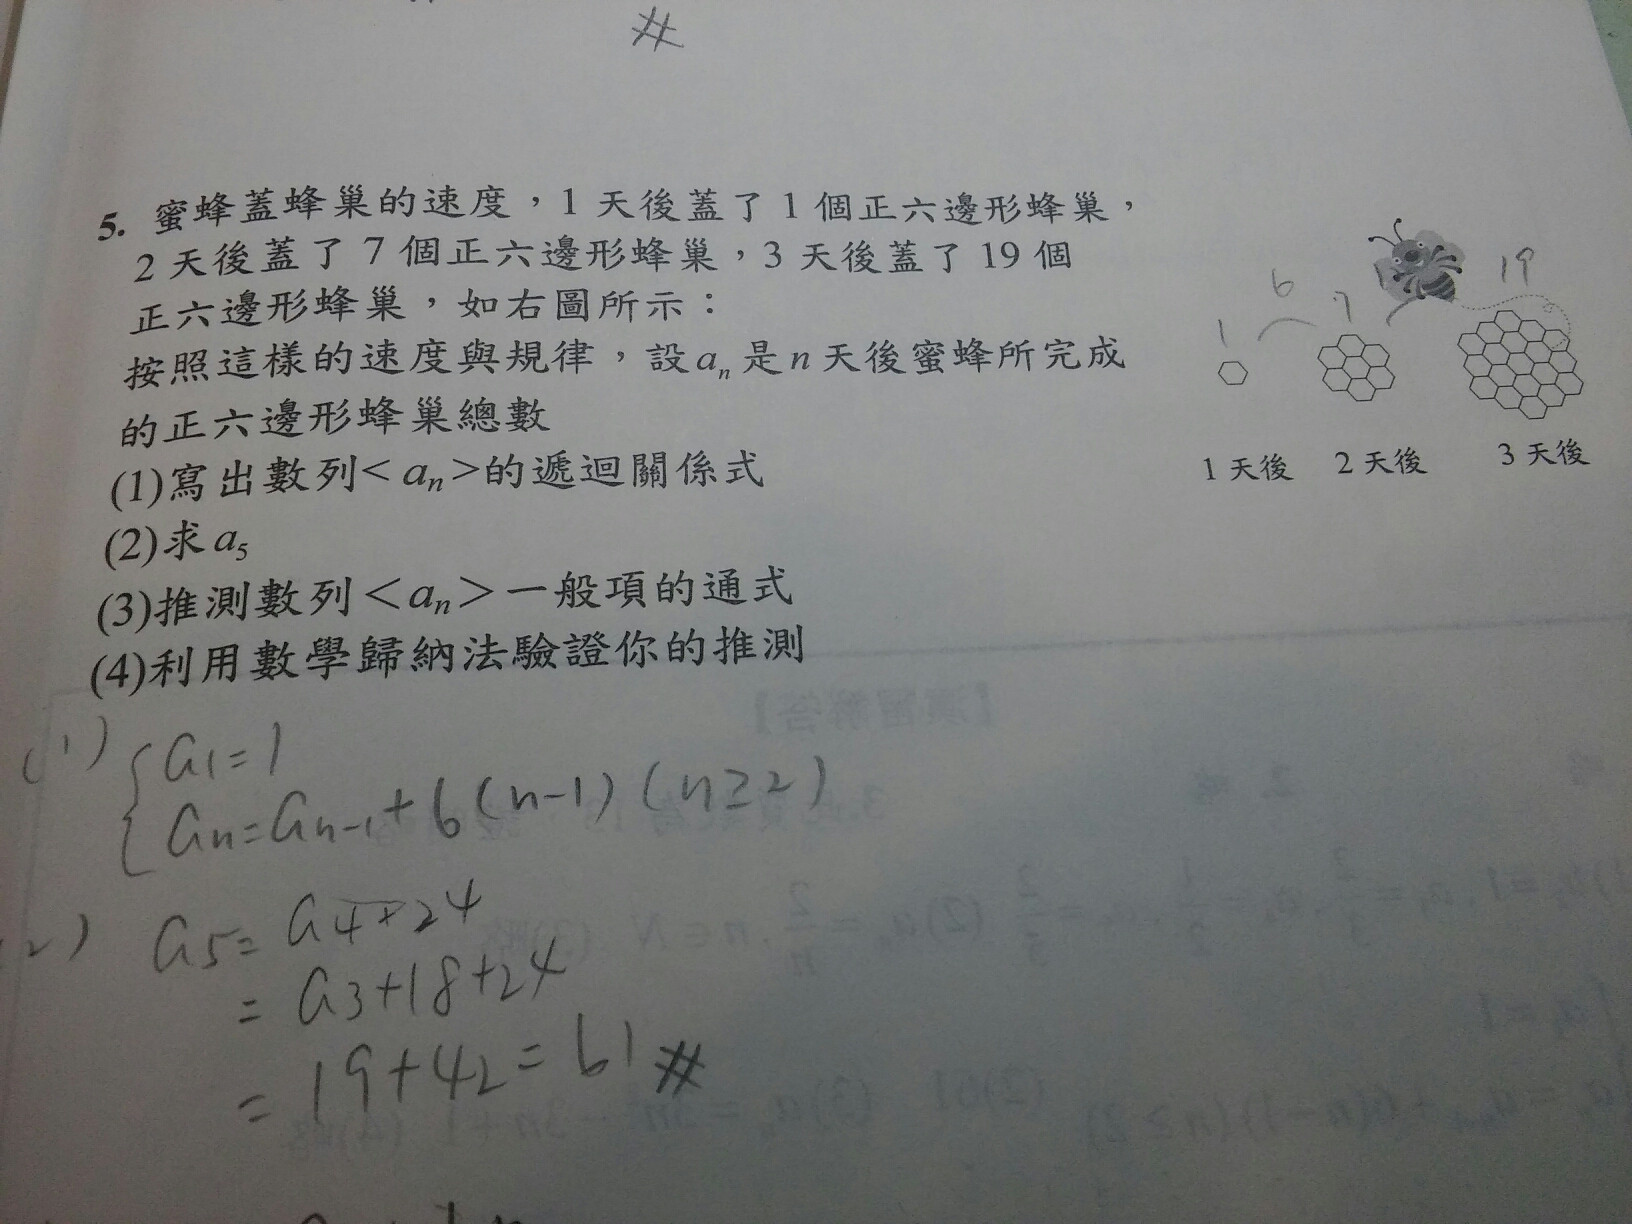 #
5. 蜜蜂蓋蜂巢的速度，1 天後蓋了 1 個正六邊形蜂巢，
2 天後蓋了 7 個正六邊形蜂巢，3 天後蓋了 19 個
正六邊形蜂巢，如右圖所示：
按照這樣的速度與規律，設 aₙ 是 n 天後蜜蜂所完成
的正六邊形蜂巢總數
(1)寫出數列< aₙ >的遞迴關係式
(2)求 a₅
(3)推測數列＜aₙ＞一般項的通式
(4)利用數學歸納法驗證你的推測
1 6 7 19
1 天後 2 天後 3 天後
(1) { a₁=1
aₙ=aₙ₋₁+6(n-1) (n≥2)
(2) a₅= a₄+24
= a₃+18+24
= 19+42=61 #